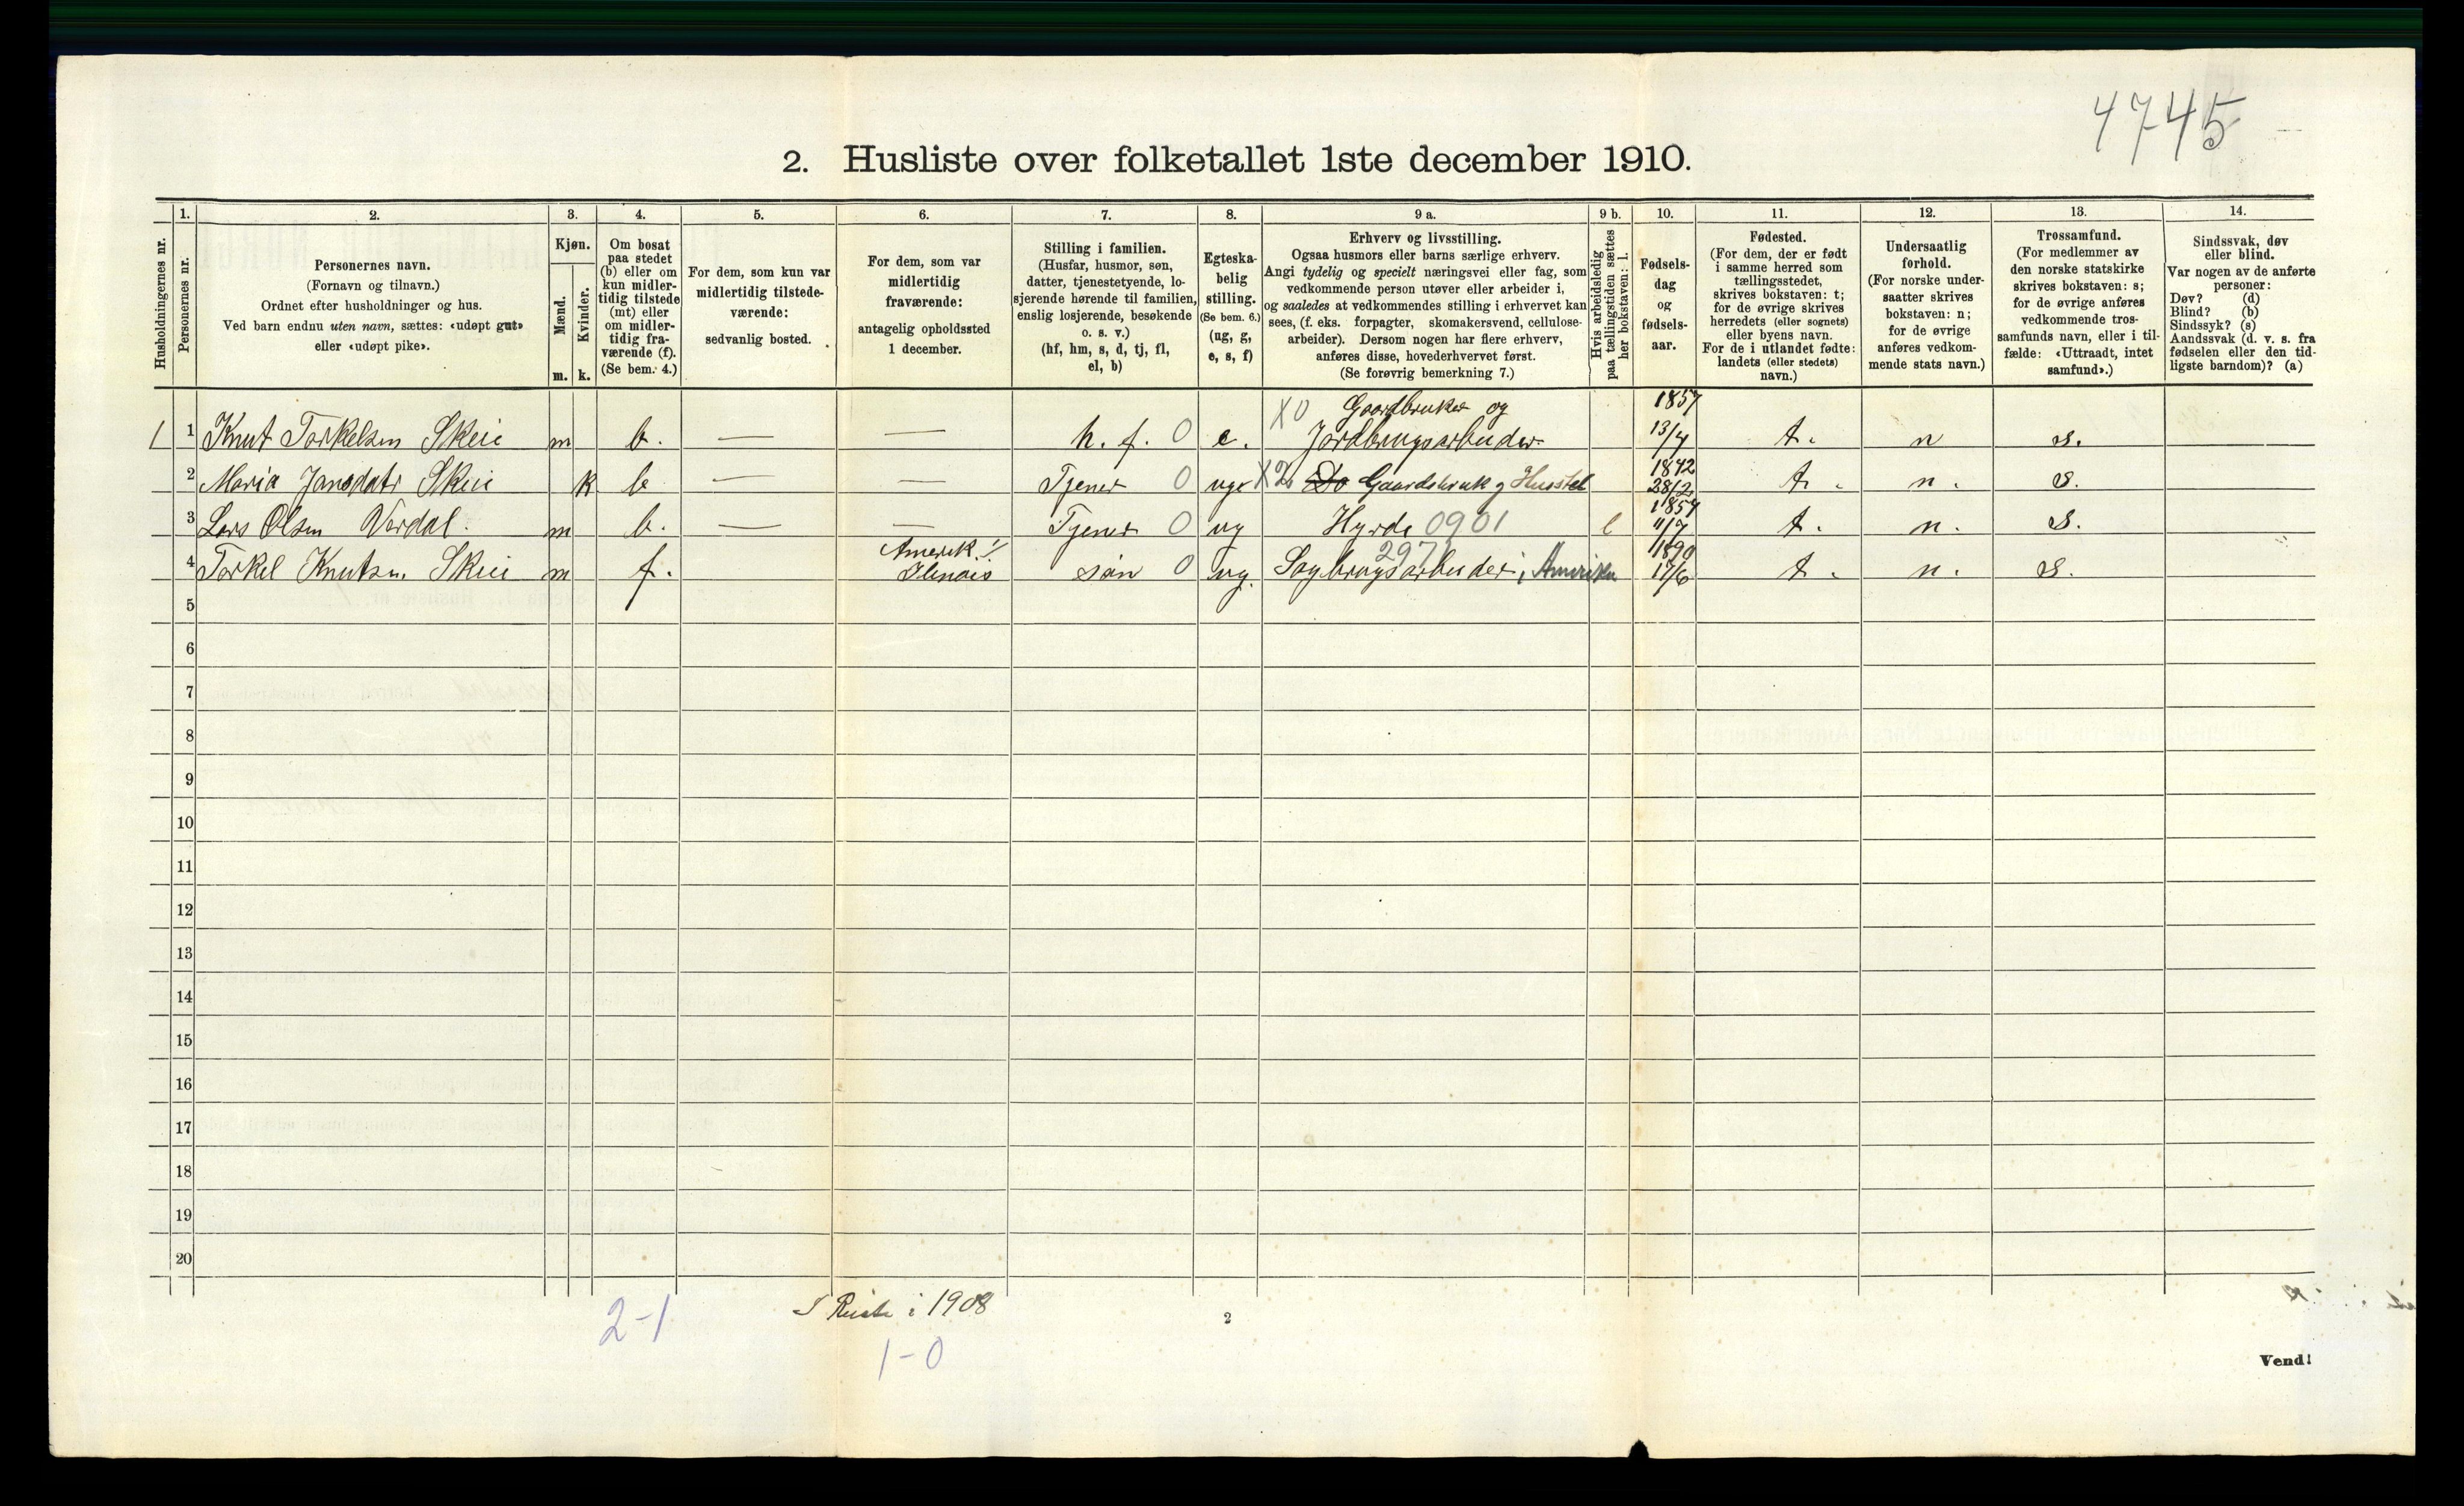 4745
2. Husliste over folketallet 1ste december 1910.
Husholdningernes nr.
1.
Personernes nr.
2.
Personernes navn.
(Fornavn og tilnavn.)
Ordnet efter husholdninger og hus.
Ved barn endnu uten navn, sættes: «udøpt gut»
eller «udøpt pike».
3.
Kjøn.
Mænd.
Kvinder.
m. k.
4.
Om bosat
paa stedet
(b) eller om
kun midler-
tidig tilstede
(mt) eller
om midler-
tidig fra-
værende (f).
(Se bem. 4.)
5.
For dem, som kun var
midlertidig tilstede-
værende:
sedvanlig bosted.
6.
For dem, som var
midlertidig
fraværende:
antagelig opholdssted
1 december.
7.
Stilling i familien.
(Husfar, husmor, søn,
datter, tjenestetyende, lo-
sjerende hørende til familien,
enslig losjerende, besøkende
o. s. v.)
(hf, hm, s, d, tj, fl,
el, b)
8.
Egteska-
belig
stilling.
(Se bem. 6.)
(ug, g,
e, s, f)
9 a.
Erhverv og livsstilling.
Ogsaa husmors eller barns særlige erhverv.
Angi tydelig og specielt næringsvei eller fag, som
vedkommende person utøver eller arbeider i,
og saaledes at vedkommendes stilling i erhvervet kan
sees, (f. eks. forpagter, skomakersvend, cellulose-
arbeider). Dersom nogen har flere erhverv,
anføres disse, hovederhvervet først.
(Se forøvrig bemerkning 7.)
9 b.
Hvis arbeidsledig
paa tællingstiden sættes
her bokstaven: l.
10.
Fødsels-
dag
og
fødsels-
aar.
11.
Fødested.
(For dem, der er født
i samme herred som
tællingsstedet,
skrives bokstaven: t;
for de øvrige skrives
herredets (eller sognets)
eller byens navn.
For de i utlandet fødte:
landets (eller stedets)
navn.)
12.
Undersaatlig
forhold.
(For norske under-
saatter skrives
bokstaven: n;
for de øvrige
anføres vedkom-
mende stats navn.)
13.
Trossamfund.
(For medlemmer av
den norske statskirke
skrives bokstaven: s;
for de øvrige anføres
vedkommende tros-
samfunds navn, eller i til-
fælde: «Uttraadt, intet
samfund».)
14.
Sindssvak, døv
eller blind.
Var nogen av de anførte
personer:
Døv? (d)
Blind? (b)
Sindssyk? (s)
Aandssvak (d. v. s. fra
fødselen eller den tid-
ligste barndom)? (a)
X0 Gaardbruker og 1857
1 1 Knut Torkelsen Skeie m b. — — h. f. 0 e. Jordbrugsarbeider 13/4 t. n s.
1842
2 Maria Jansdatr Skeie k b — — Tjener 0 uge X2 Do Gaardsbruk og Husstel 28/2 t. n. s.
1857
3 Lars Olsen Verdal. m b. — — Tjener 0 ug Hyrde 0901 l 11/7 t. n. s.
Amerik. 297 1890
4 Torkel Knutsen Skeie m f. Ilenois søn 0 ug. Sagbrugsarbeider i Amerika 17/6 t. n. s.
5
6
7
8
9
10
11
12
13
14
15
16
17
18
19
20
2-1
Reiste i 1908
1-0
2
Vend!